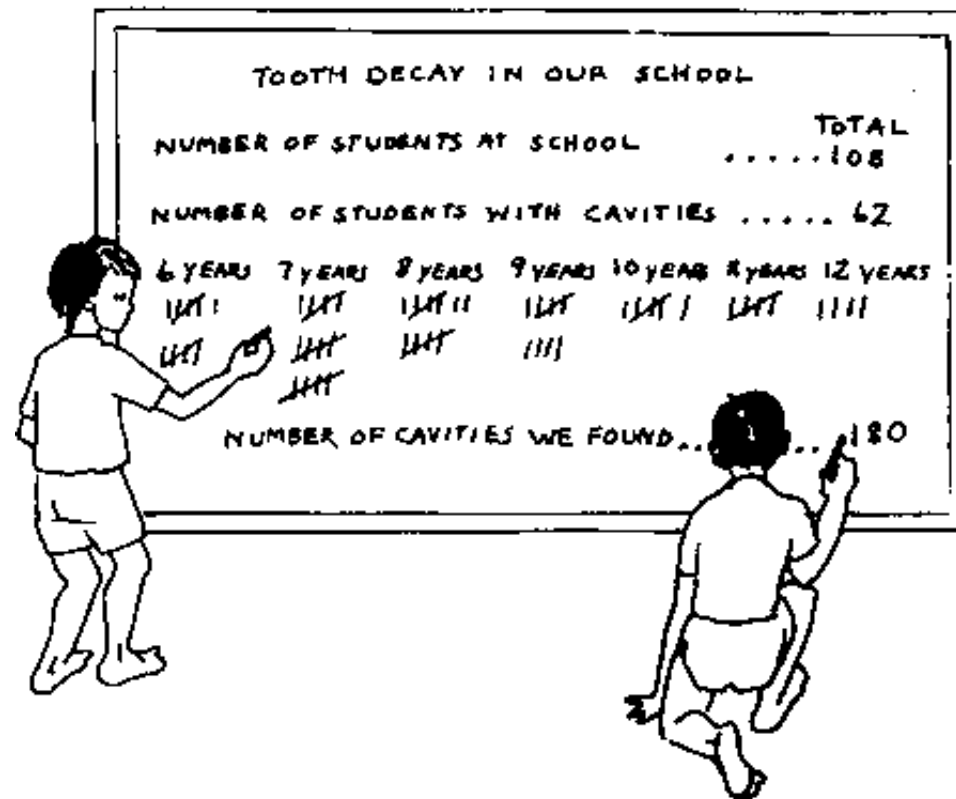 TOOTH DECAY IN OUR SCHOOL
TOTAL
NUMBER OF STUDENTS AT SCHOOL .....108
NUMBER OF STUDENTS WITH CAVITIES ..... 62
6 YEARS 7 YEARS 8 YEARS 9 YEARS 10 YEARS YEARS 12 YEARS
NUMBER OF CAVITIES WE FOUND.. .. 180